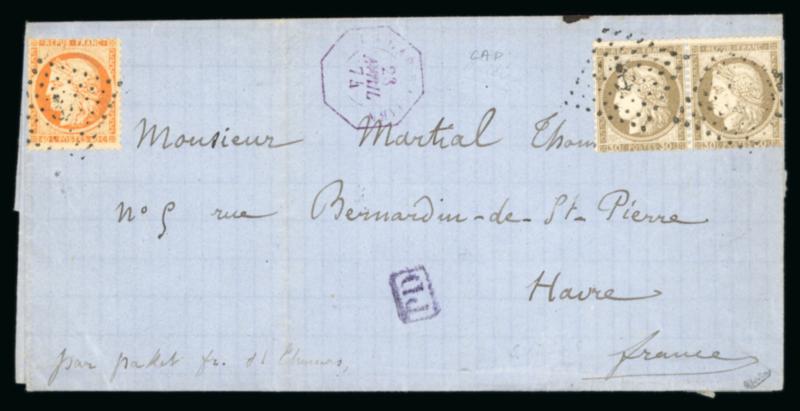 REPUB FRANC
40 C POSTES 40 C
23
AVRIL
74
CAD
REPUB FRANC
30 POSTES 30
REPUB FRANC
30 POSTES 30
Monsieur Martial Thom
N° 5 rue Bernardin-de-St-Pierre
PD
Havre
france
par paket fr.